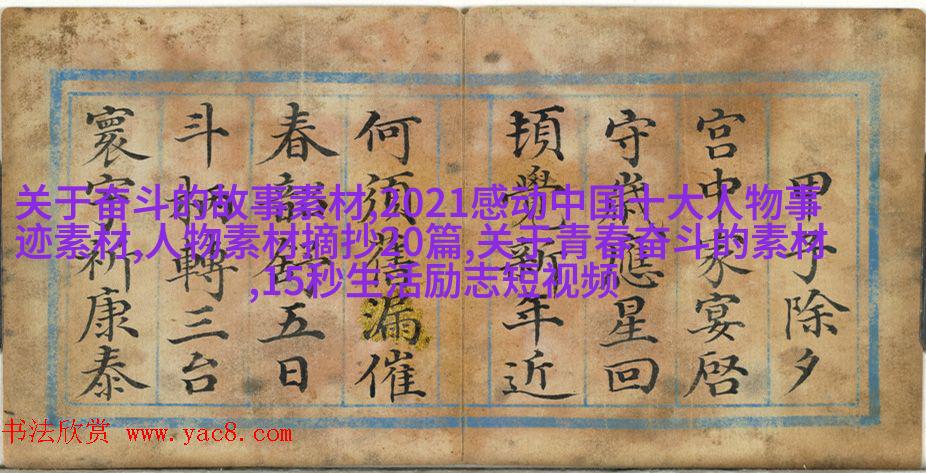 甲子除夕
宮中家宴啓
守歲應星回
頓覺新年近
何須舊漏催
春五日
斗柄轉三台
寰宇祈康泰
关于奋斗的故事素材,2021感动中国十大人物事
迹素材,人物素材摘抄20篇,关于青春奋斗的素材
,15秒生活励志短视频
书法欣赏 www.yac8.com